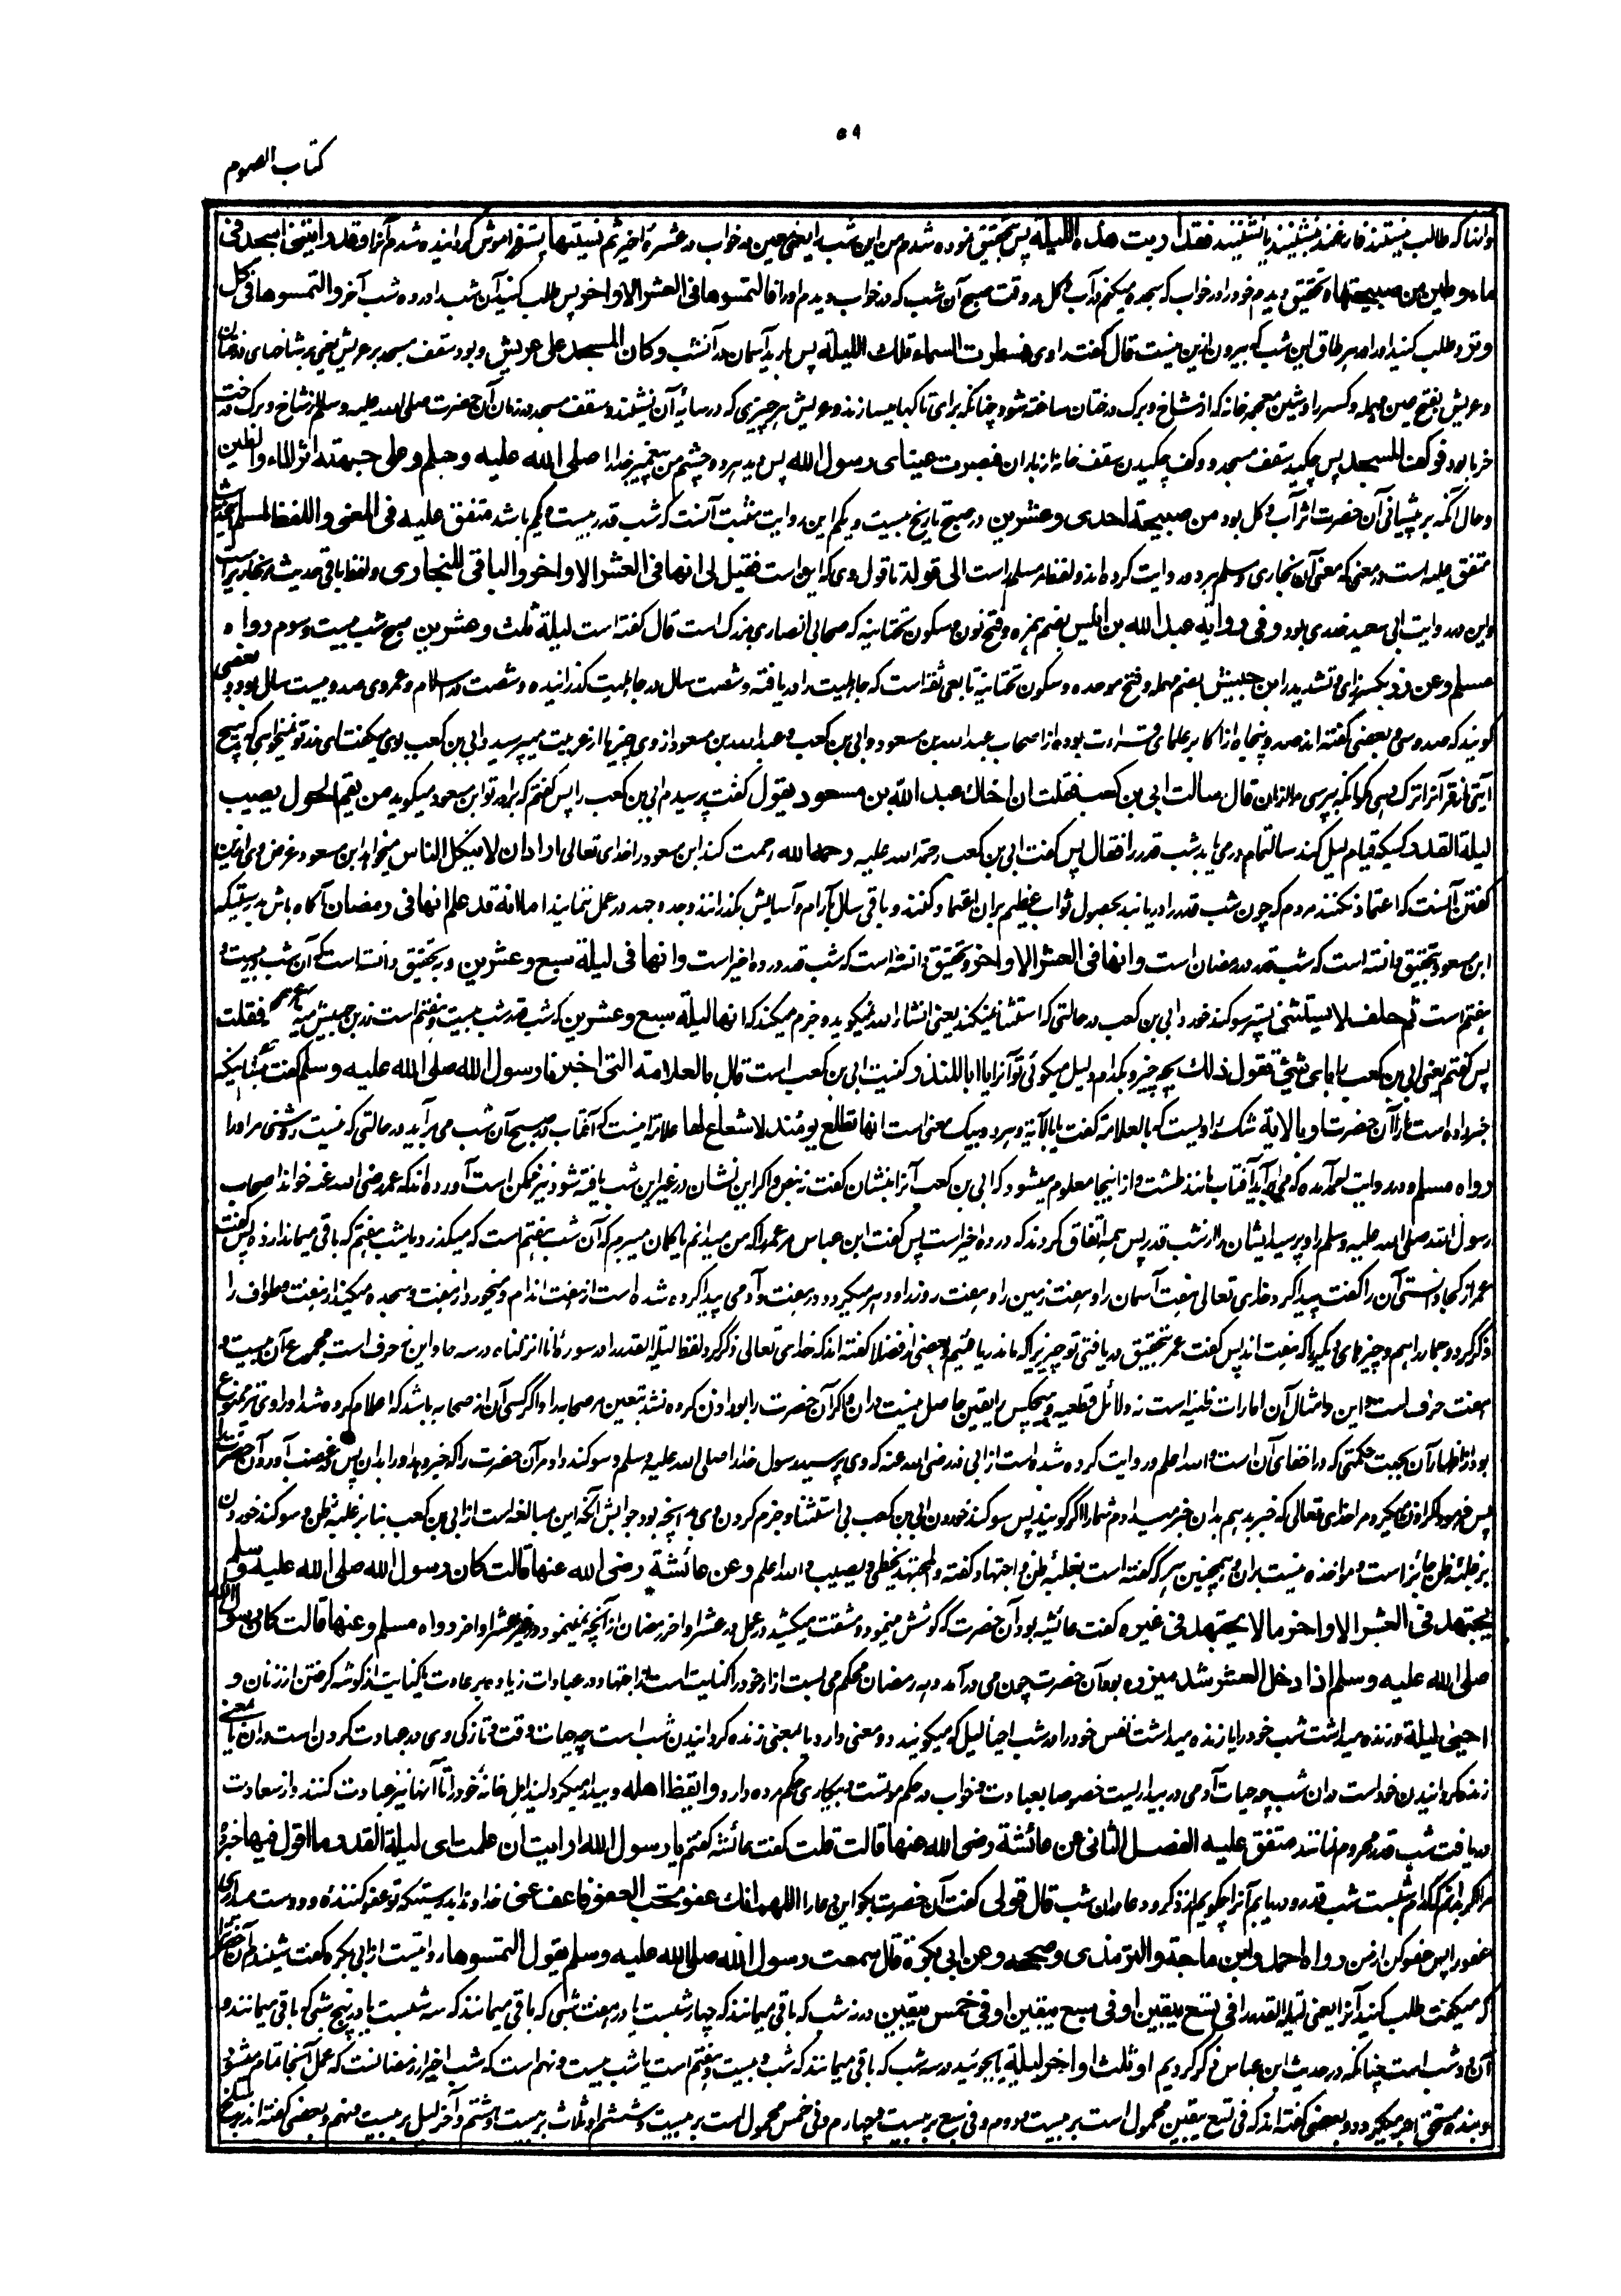 ۵۹
کتاب الصوم
وانها که طالب نیستند فارغند بنشینند یا ننشینند فقد اریت هذه اللیلة پس بتحقیق نموده شدم من این شب را یعنی معین در خواب در عشرهٔ اخیر ثم نسیتها پستر فراموش گردانیده شدم آنرا و قد رایتنی اسجد فی
ماء وطین من صبیحتها و تحقیق دیدم خود را در خواب که سجده میکنم در آب و گل در وقت صبح آن شب که در خواب دیدم او را فالتمسوها فی العشر الاواخر پس طلب کنید آن شب را در ده شب آخر والتمسوها فی کل
وتر و طلب کنید او را در هر طاق این شب که بیرون ازین نیست قال گفت راوی فمطرت السماء تلك اللیلة پس بارید آسمان در آنشب وکان المسجد علی عریش و بود سقف مسجد بر عریش یعنی بر شاخهای درختان
و عریش بفتح عین مهمله و کسر را و شین معجمه خانه که از شاخ و برگ درختان ساخته شود چنانکه برای تاکها میسازند و عریش هر چیزی که در سایهٔ آن نشینند و سقف مسجد در زمان آن حضرت صلی الله علیه وسلم از شاخ و برگ درخت
خرما بود فوکف المسجد پس چکید سقف مسجد و وکف چکیدن سقف خانه از باران فبصرت عینای رسول الله پس دید هر دو چشم من پیغمبر خدا را صلی الله علیه وسلم وعلی جبهته اثر الماء والطین
و حال آنکه بر پیشانی آن حضرت اثر آب و گل بود من صبیحة احدی وعشرین در صبح تاریخ بیست و یکم این روایت مثبت آنست که شب قدر بیست و یکم باشد متفق علیه فی المعنی واللفظ لمسلم
متفق علیه است در معنی که معنی آن بخاری و مسلم هر دو روایت کرده اند و لفظ مر مسلم راست الی قوله تا قول وی که این است فقیل لی انها فی العشر الاواخر والباقی للبخاری و لفظ باقی حدیث مر بخاری راست
و این در روایت ابی سعید خدری بود وفی روایة عبد الله بن انیس بضم همزه و فتح نون و سکون تحتانیه که صحابی انصاری بزرگ است قال گفته است لیلة ثلث وعشرین صبح شب بیست و سوم رواه
مسلم وعن زر بکسر زای و تشدید را بن حبیش بضم مهمله و فتح موحده و سکون تحتانیه تابعی ثقه است که جاهلیت را دریافته و شصت سال در جاهلیت گذرانیده و شصت در اسلام و عمر وی صد و بیست سال بود و بعضی
گویند که صد و سی و بعضی گفته اند صد و پنجاه از اکابر علمای قراءت بوده از اصحاب عبدالله بن مسعود و ابی بن کعب و عبدالله بن مسعود از وی چیزها از عربیت میپرسید و ابی بن کعب بوی میگفت ای زر تو نمیخواهی که هیچ
آیتی از قرآن را ترک دهی مگر آنکه بپرسی مرا از ان قال سالت ابی بن کعب فقلت ان اخاك عبد الله بن مسعود یقول گفت پرسیدم ابی بن کعب را پس گفتم که برادر تو ابن مسعود میگوید من یقم الحول یصیب
لیلة القدر کسیکه قیام لیل کند سال تمام در می یابد شب قدر را فقال پس گفت ابی بن کعب رحمة الله علیه رحمه الله رحمت کند ابن مسعود را خدای تعالی اراد ان لا یتکل الناس میخواهد ابن مسعود و غرض وی ازین
گفتن آنست که اعتماد نکنند مردم که چون شب قدر را دریابند بحصول ثواب عظیم بران اعتماد کنند و باقی سال بآرام و آسایش بگذرانند و جد و جهد در عمل ننمایند اما انه قد علم انها فی رمضان آگاه باش بدرستیکه
ابن مسعود بتحقیق دانسته است که شب قدر در رمضان است وانها فی العشر الاواخر و تحقیق دانسته است که شب قدر در ده اخیر است وانها فی لیلة سبع وعشرین و بتحقیق دانسته است که آن شب در بیست و
هفتم است ثم حلف لا یستثنی پستر سوگند خورد ابی بن کعب در حالتی که استثنا نمیکند یعنی انشاء الله نمیگوید و جزم میکند که انها لیلة سبع وعشرین که شب قدر شب بیست و هفتم است زر بن حبیش میگوید فقلت
پس گفتم یعنی ابی بن کعب را بای شیء تقول ذلك بچه چیز و بکدام دلیل میگوئی تو آنرا یا ابا المنذر و کنیت ابی بن کعب است قال بالعلامة التی اخبرنا رسول الله صلی الله علیه وسلم گفت بنشانیکه
خبر داده است ما را آن حضرت او بالایة شک راویست که بالعلامة گفت یا بالآیة و هر دو بیک معنی است انها تطلع یومئذ لا شعاع لها علامت اینست که آفتاب در صبح آن شب می برآید در حالتی که نیست روشنی مر او را
رواه مسلم و در روایت احمد آمده که می برآید آفتاب مانند طشت و از اینجا معلوم میشود که ابی بن کعب آنرا بنشان گفت نه بنص و اگر این نشان در غیر این شب یافته شود نیز ممکن است آورده اند که عمر رضی الله عنه خواند اصحاب
رسول الله صلی الله علیه وسلم را و پرسید ایشان را از شب قدر پس همه اتفاق کردند که در ده اخیر است پس گفت ابن عباس مر عمر را که من میدانم یا گمان میبرم که آن شب هفتم است که میگذرد یا شب هفتم که باقی میماند از ده پس گفت
عمر از کجا دانستی آن را گفت پیدا کرد خدای تعالی هفت آسمان را و هفت زمین را و هفت روز را و دهر میگردد در هفت و آدمی پیدا کرده شده است از هفت اندام و میخورد از هفت و سجده میکند از هفت و طواف را
ذکر کرد و جمار را هم و چیزهای دیگر را که هفت اند پس گفت عمر بتحقیق دریافتی تو چیزیرا که ما نه دریافتیم و بعضی از فضلا گفته اند که خدای تعالی ذکر کرد لفظ لیلة القدر را در سورهٔ انا انزلناه در سه جا و این نه حرف است مجموع آن بیست و
هفت حرف است و این و امثال آن امارات ظنیه است نه دلائل قطعیه و هیچکس را یقین حاصل نیست دران و اگر آن حضرت را بود اذن کرده نشد بتعین مر صحابه را و اگر کسی آن از صحابه باشد که اعلام کرده شد او را وی نیز ممنوع
بود از اظهار آن بجهت حکمتی که در اخفای آن است والله اعلم و روایت کرده شده است از ابی ذر رضی الله عنه که وی پرسید رسول خدا را صلی الله علیه وسلم و سوگند داد مر آن حضرت را که خبر دهد او را بدان پس غضب آورد آن حضرت
پس فرمود اگر اذن میکرد مرا خدای تعالی که خبر بدهم بدان خبر میدادم شما را اگر گویند پس سوگند خوردن ابی بن کعب بی استثنا و جزم کردن وی بر چه بود جوابش آنکه این مبالغه است از ابی بن کعب بنا بر غلبهٔ ظن و سوگند خوردن
بر غلبهٔ ظن جائز است و مواخذه نیست بران و همچنین هر که گفته است بغلبهٔ ظن و اجتهاد گفته والمجتهد یخطی ویصیب والله اعلم وعن عائشة رضی الله عنها قالت کان رسول الله صلی الله علیه وسلم
یجتهد فی العشر الاواخر ما لا یجتهد فی غیره گفت عائشه بود آن حضرت که کوشش مینمود و مشقت میکشید در عمل در عشر اواخر رمضان از آنچه نمینمود در غیر عشر اواخر رواه مسلم وعنها قالت کان رسول الله
صلی الله علیه وسلم اذا دخل العشر شد میزره بود آن حضرت چون می درآمد دهه رمضان محکم می بست ازار خود را کنایت است از اجتهاد در عبادات زیاده بر عادت یا کنایت از گوشه گرفتن از زنان و
احیی لیله و زنده میداشت شب خود را یا زنده میداشت نفس خود را در شب احیاء لیل که میگویند دو معنی دارد یا بمعنی زنده گردانیدن شب است چه حیات وقت و تازگی وی در عبادت کردن است دران یا بمعنی
زنده گردانیدن خود است دران شب چه حیات آدمی در بیداریست خصوصا بعبادت و خواب در حکم موتست و بیکاری حکم مرده دارد وایقظ اهله و بیدار میگردانید اهل خانهٔ خود را تا آنها نیز عبادت کنند و از سعادت
دریافت شب قدر محروم نمانند متفق علیه الفصل الثانی عن عائشة رضی الله عنها قالت قلت گفت عائشه گفتم یا رسول الله ارایت ان علمت ای لیلة القدر ما اقول فیها خبر ده
مرا اگر بدانم که کدام شبست شب قدر و دریابم آنرا چگویم از ذکر و دعا دران شب قال قولی گفت آن حضرت بگو این دعا را اللهم انك عفو تحب العفو فاعف عنی خداوندا بدرستیکه تو عفو کننده و دوست میداری
عفو را پس عفو کن از من رواه احمد وابن ماجة والترمذی وصححه وعن ابی بکرة قال سمعت رسول الله صلی الله علیه وسلم یقول التمسوها روایتست از ابی بکره گفت شنیدم آن حضرت را
که میگفت طلب کنید آنرا یعنی لیلة القدر را فی تسع یبقین او فی سبع یبقین او فی خمس یبقین در نه شب که باقی میمانند که چهار شبست یا در هفت شبی که باقی میمانند که سه شبست یا در پنج شبی که باقی میمانند و
آن دو شب است چنانکه در حدیث ابن عباس ذکر کردیم او ثلث او اخر لیلة یا بجوئید در سه شب که باقی میمانند که شب بیست و هفتم است یا شب بیست و نهم است که شب اخیر از رمضانست که عمل آنجا تمام میشود
و بنده مستحق اجر میگردد و بعضی گفته اند که فی تسع یبقین محمول است بر بیست و دوم و فی سبع بر بیست و چهارم و فی خمس محمول است بر بیست و ششم او ثلاث بر بیست و هشتم و آخر لیل بر بیست و نهم و بعضی گفته اند